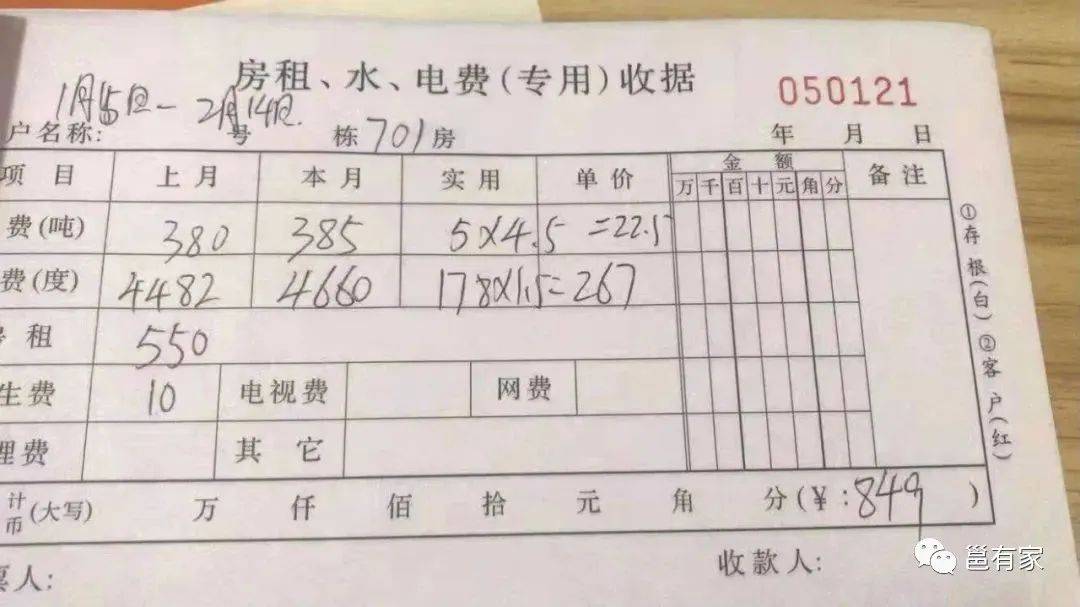 房租、水、电费(专用)收据
050121
1月15日-2月14日
户名称: 号 栋 701 房 年 月 日
项目 上月 本月 实用 单价 金额 备注
万 千 百 十 元 角 分
费(吨) 380 385 5×4.5 =22.5
费(度) 4482 4660 178×1.5=267
租 550
生费 10 电视费 网费
理费 其它
计
币(大写) 万 仟 佰 拾 元 角 分(¥:849)
票人: 收款人:
①存根(白)②客户(红)
邕有家